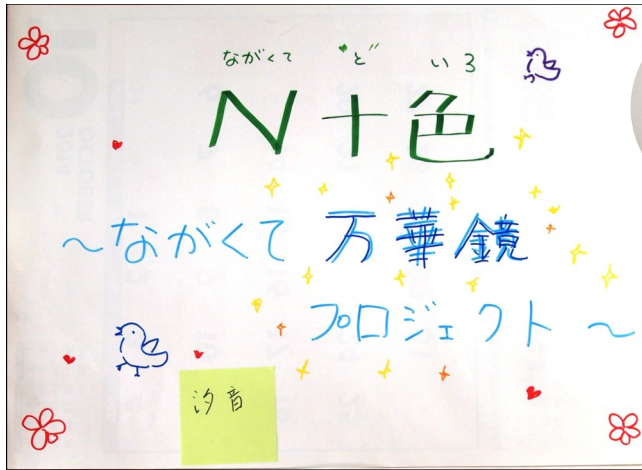 ながくて ど いろ
N十色
~ながくて 万華鏡
プロジェクト~
汐音